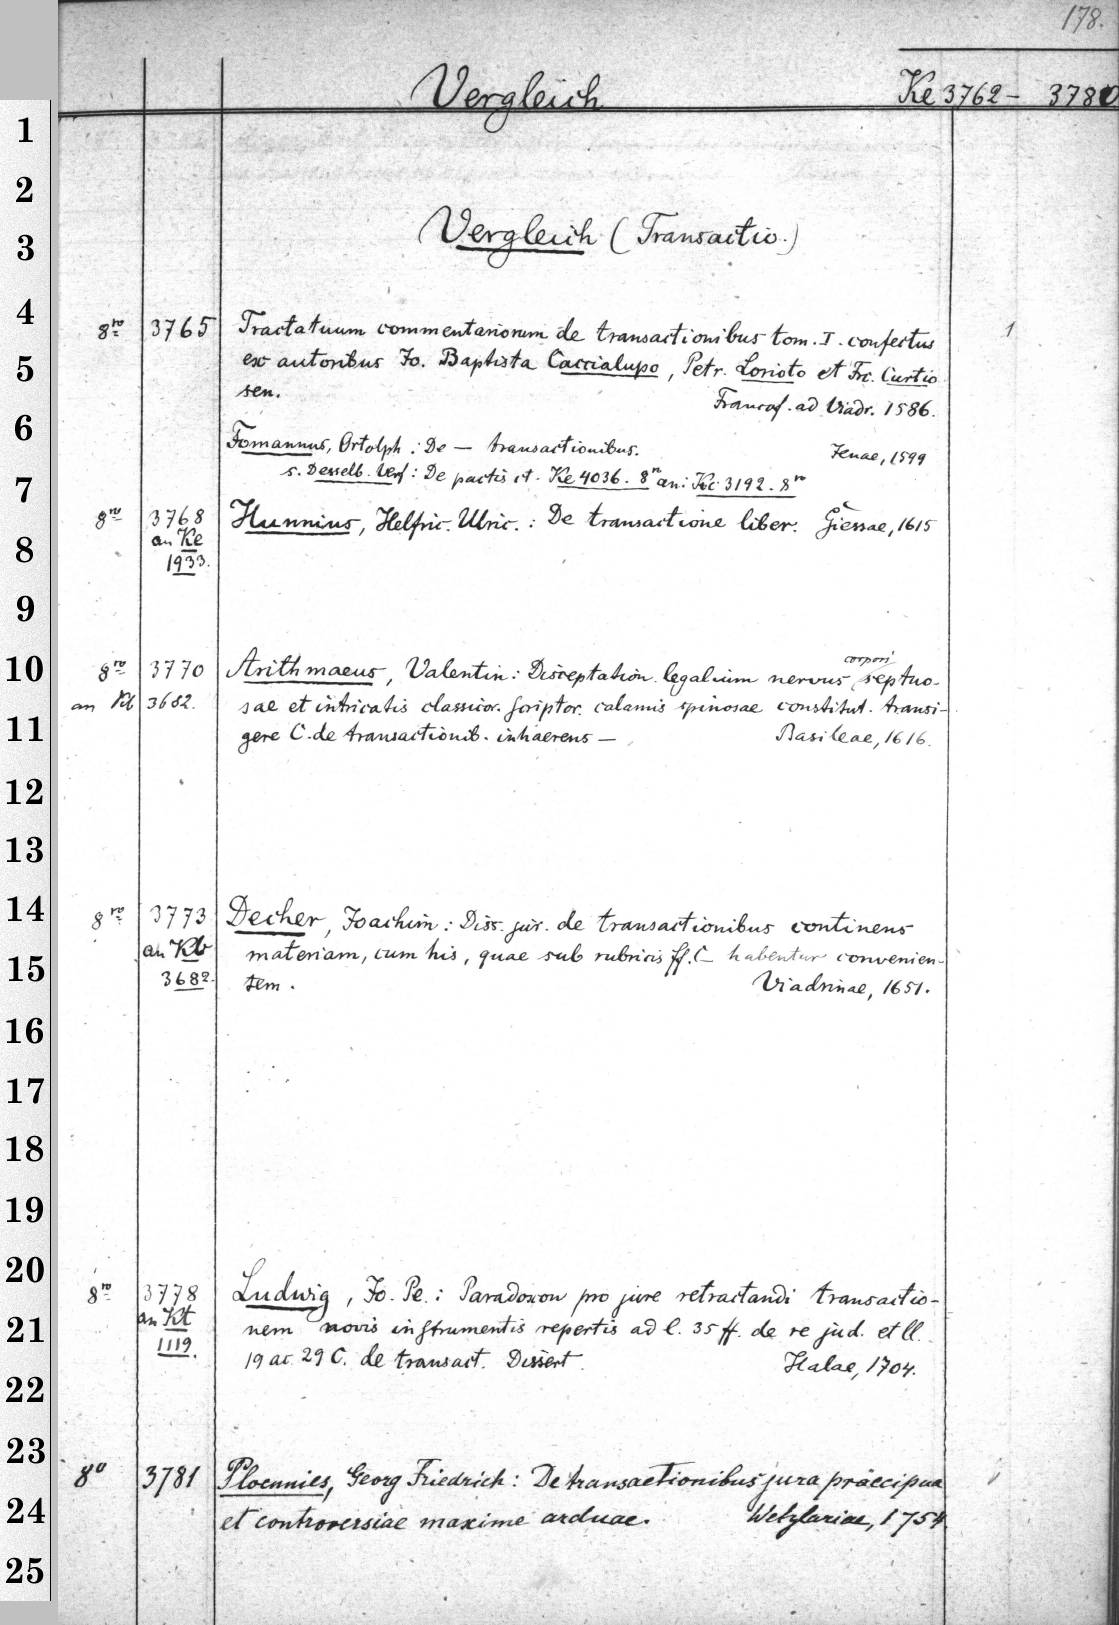 178.
Vergleich Ke 3762 - 3780
Vergleich (Transactio.)
8ro 3765 Tractatuum commentariorum de transactionibus tom. I. confectus 1
ex autoribus Jo. Baptista Caccialupo, Petr. Lorioto et Frc. Curtio
sen. Francof. ad Viadr. 1586.
Fomannus, Ortolph: De — transactionibus. Jenae, 1599
s. Desselb. Verf: De pactis et. Ke 4036. 8ro an: Kc 3192. 8ro
8ro 3768 Hunnius, Helfric. Ulric.: De transactione liber. Giessae, 1615
an Ke
1933.
8ro 3770 Arithmaeus, Valentin: Disceptation. legalium nervus corpori septuo-
an Kb 3682. sae et intricatis classicor. scriptor. calamis spinosae constitut. transi-
gere C. de transactionib. inhaerens — Basileae, 1616.
8ro 3773 Decher, Joachim: Diss. jur. de transactionibus continens
an Kb materiam, cum his, quae sub rubricis ff. C — habentur convenien-
3682. tem. Viadrinae, 1651.
8ro 3778 Ludwig, Jo. Pe.: Paradoxon pro jure retractandi transactio-
an Kt nem novis instrumentis repertis ad l. 35 ff. de re jud. et ll.
1119. 19 ac 29 C. de transact. Dissert. Halae, 1704.
8o 3781 Ploennies, Georg Friedrich: De transactionibus jura praecipua
et controversiae maxime arduae. Wetzlariae, 1754
1
2
3
4
5
6
7
8
9
10
11
12
13
14
15
16
17
18
19
20
21
22
23
24
25